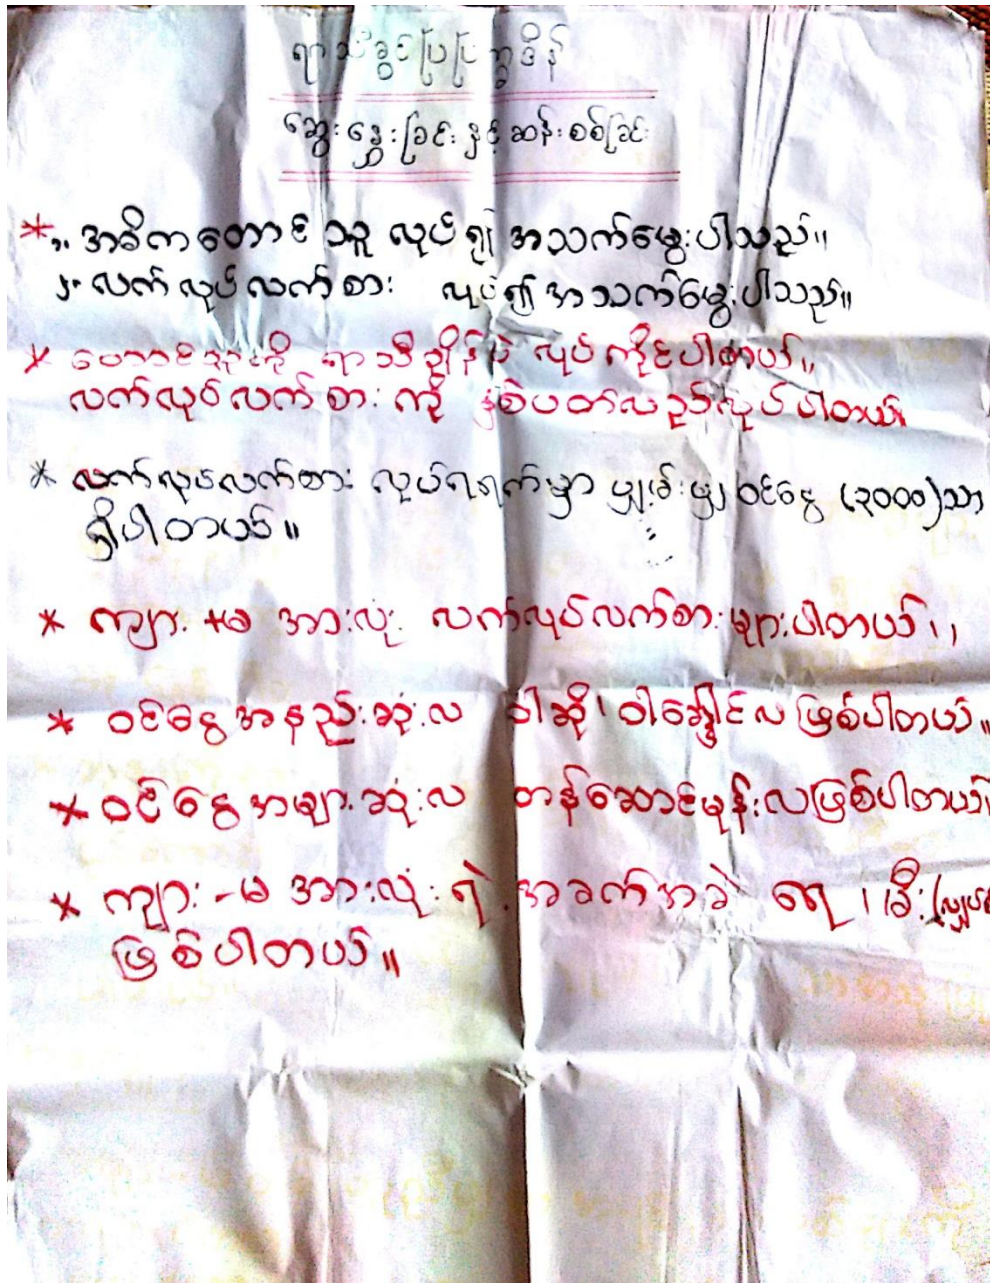 ရာသီခွင်ပြပြက္ခဒိန်
ဆွေးနွေးခြင်းနှင့်ဆန်းစစ်ခြင်း
* ၁။ အဓိကတောင်သူ လုပ်၍ အသက်မွေးပါသည်။
၂။ လက်လုပ်လက်စား လုပ်၍ အသက်မွေးပါသည်။
* တောင်သူကို ရာသီချိန်ပဲ လုပ်ကိုင်ပါတယ်။
လက်လုပ်လက်စားကို နှစ်ပတ်လည်လုပ်ပါတယ်။
* လက်လုပ်လက်စား လုပ်ရရက်မှာ ပျှမ်းမျှ ဝင်ငွေ (၃၀၀၀)သာ
ရှိပါတယ်။
* ကျား +မ အားလုံး လက်လုပ်လက်စားများပါတယ်။
* ဝင်ငွေအနည်းဆုံးလ ဝါဆို၊ ဝါခေါင်လဖြစ်ပါတယ်။
* ဝင်ငွေအများဆုံးလ တန်ဆောင်မုန်းလဖြစ်ပါတယ်။
* ကျား -မ အားလုံးရဲ့ အခက်အခဲ ရေ ၊ မီး
ဖြစ်ပါတယ်။